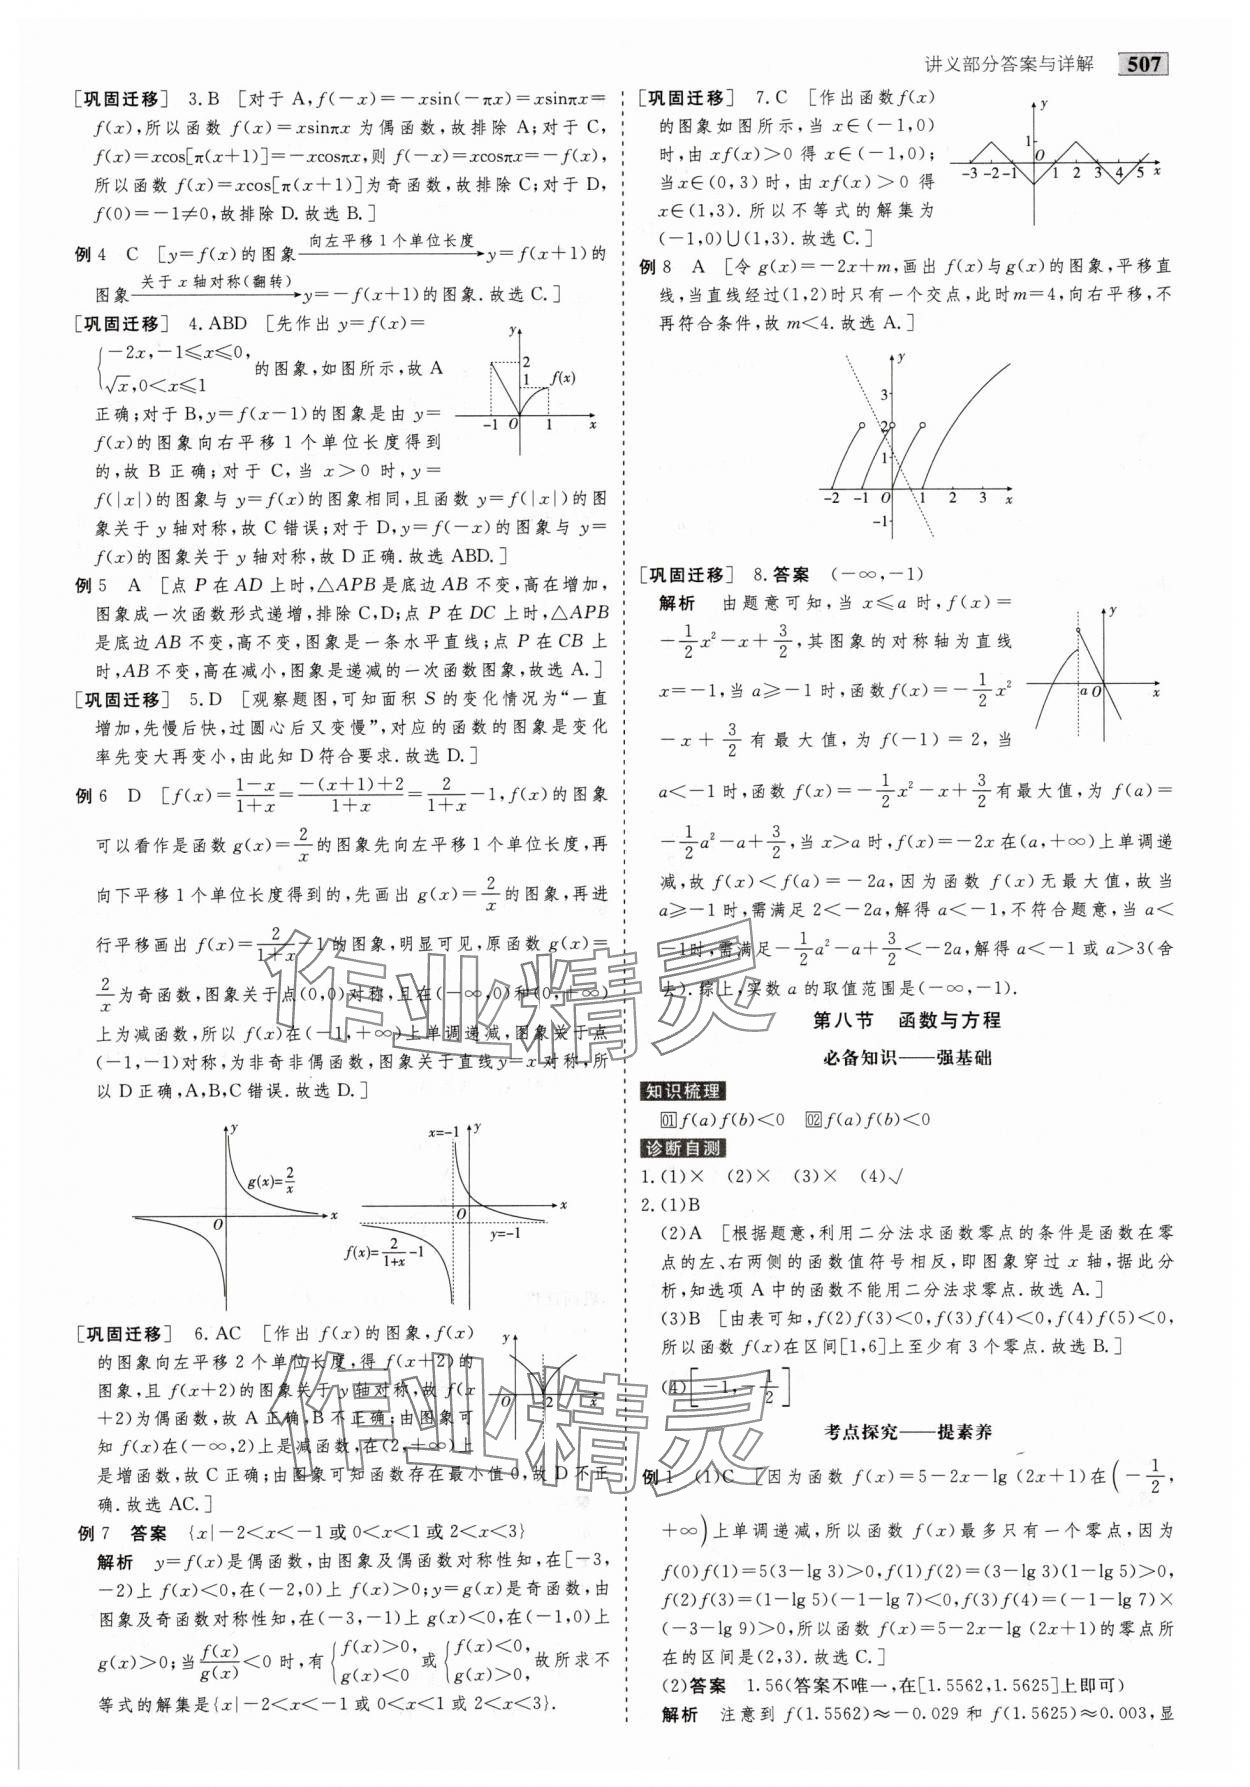 讲义部分答案与详解 507
[巩固迁移] 3.B [对于 A,f(－x)＝－xsin(－πx)＝xsinπx＝
f(x),所以函数 f(x)＝xsinπx 为偶函数,故排除 A;对于 C,
f(x)＝xcos[π(x＋1)]＝－xcosπx,则 f(－x)＝xcosπx＝－f(x),
所以函数 f(x)＝xcos[π(x＋1)]为奇函数,故排除 C;对于 D,
f(0)＝－1≠0,故排除 D.故选 B.]
例 4 C [y＝f(x)的图象 向左平移 1 个单位长度 y＝f(x＋1)的
图象 关于 x 轴对称(翻转) y＝－f(x＋1)的图象.故选 C.]
[巩固迁移] 4.ABD [先作出 y＝f(x)＝
{－2x,－1≤x≤0,
√x,0＜x≤1
的图象,如图所示,故 A
正确;对于 B,y＝f(x－1)的图象是由 y＝
f(x)的图象向右平移 1 个单位长度得到
的,故 B 正确;对于 C,当 x＞0 时,y＝
f(|x|)的图象与 y＝f(x)的图象相同,且函数 y＝f(|x|)的图
象关于 y 轴对称,故 C 错误;对于 D,y＝f(－x)的图象与 y＝
f(x)的图象关于 y 轴对称,故 D 正确.故选 ABD.]
y 2 1 f(x) －1 O 1 x
例 5 A [点 P 在 AD 上时,△APB 是底边 AB 不变,高在增加,
图象成一次函数形式递增,排除 C,D;点 P 在 DC 上时,△APB
是底边 AB 不变,高不变,图象是一条水平直线;点 P 在 CB 上
时,AB 不变,高在减小,图象是递减的一次函数图象,故选 A.]
[巩固迁移] 5.D [观察题图,可知面积 S 的变化情况为“一直
增加,先慢后快,过圆心后又变慢”,对应的函数的图象是变化
率先变大再变小,由此知 D 符合要求.故选 D.]
例 6 D [f(x)＝(1－x)/(1＋x)＝(－(x＋1)＋2)/(1＋x)＝2/(1＋x)－1,f(x)的图象
可以看作是函数 g(x)＝2/x的图象先向左平移 1 个单位长度,再
向下平移 1 个单位长度得到的,先画出 g(x)＝2/x的图象,再进
行平移画出 f(x)＝2/(1＋x)－1 的图象,明显可见,原函数 g(x)＝
2/x为奇函数,图象关于点(0,0)对称,且在(－∞,0)和(0,＋∞)
上为减函数,所以 f(x)在(－1,＋∞)上单调递减,图象关于点
(－1,－1)对称,为非奇非偶函数,图象关于直线 y＝x 对称,所
以 D 正确,A,B,C 错误.故选 D.]
y g(x)=2/x O x
x=-1 y O x y=-1 f(x)=2/(1+x)-1
[巩固迁移] 6.AC [作出 f(x)的图象,f(x)
的图象向左平移 2 个单位长度,得 f(x＋2)的
图象,且 f(x＋2)的图象关于 y 轴对称,故 f(x
＋2)为偶函数,故 A 正确,B 不正确;由图象可
知 f(x)在(－∞,2)上是减函数,在(2,＋∞)上
是增函数,故 C 正确;由图象可知函数存在最小值 0,故 D 不正
确.故选 AC.]
y O 2 x
例 7 答案 {x|－2＜x＜－1 或 0＜x＜1 或 2＜x＜3}
解析 y＝f(x)是偶函数,由图象及偶函数对称性知,在[－3,
－2)上 f(x)＜0,在(－2,0)上 f(x)＞0;y＝g(x)是奇函数,由
图象及奇函数对称性知,在(－3,－1)上 g(x)＜0,在(－1,0)上
g(x)＞0;当f(x)/g(x)＜0 时,有{f(x)＞0, g(x)＜0 或{f(x)＜0, g(x)＞0, 故所求不
等式的解集是{x|－2＜x＜－1 或 0＜x＜1 或 2＜x＜3}.
[巩固迁移] 7.C [作出函数 f(x)
的图象如图所示,当 x∈(－1,0)
时,由 xf(x)＞0 得 x∈(－1,0);
当 x∈(0,3)时,由 xf(x)＞0 得
x∈(1,3).所以不等式的解集为
(－1,0)∪(1,3).故选 C.]
y 1 O -3 -2 -1 1 2 3 4 5 x
例 8 A [令 g(x)＝－2x＋m,画出 f(x)与 g(x)的图象,平移直
线,当直线经过(1,2)时只有一个交点,此时 m＝4,向右平移,不
再符合条件,故 m＜4.故选 A.]
y 3 2 1 -2 -1 O 1 2 3 x -1
[巩固迁移] 8.答案 (－∞,－1)
解析 由题意可知,当 x≤a 时,f(x)＝
－1/2x²－x＋3/2,其图象的对称轴为直线
x＝－1,当 a≥－1 时,函数 f(x)＝－1/2x²
－x＋3/2有最大值,为 f(－1)＝2,当
y a O x
a＜－1 时,函数 f(x)＝－1/2x²－x＋3/2有最大值,为 f(a)＝
－1/2a²－a＋3/2,当 x＞a 时,f(x)＝－2x 在(a,＋∞)上单调递
减,故 f(x)＜f(a)＝－2a,因为函数 f(x)无最大值,故当
a≥－1 时,需满足 2＜－2a,解得 a＜－1,不符合题意,当 a＜
－1 时,需满足－1/2a²－a＋3/2＜－2a,解得 a＜－1 或 a＞3(舍
去).综上,实数 a 的取值范围是(－∞,－1).
第八节 函数与方程
必备知识——强基础
知识梳理
01 f(a)f(b)＜0 02 f(a)f(b)＜0
诊断自测
1.(1)× (2)× (3)× (4)√
2.(1)B
(2)A [根据题意,利用二分法求函数零点的条件是函数在零
点的左、右两侧的函数值符号相反,即图象穿过 x 轴,据此分
析,知选项 A 中的函数不能用二分法求零点.故选 A.]
(3)B [由表可知,f(2)f(3)＜0,f(3)f(4)＜0,f(4)f(5)＜0,
所以函数 f(x)在区间[1,6]上至少有 3 个零点.故选 B.]
(4)[－1,－1/2]
考点探究——提素养
例 1 (1)C [因为函数 f(x)＝5－2x－lg (2x＋1)在(－1/2,
＋∞)上单调递减,所以函数 f(x)最多只有一个零点,因为
f(0)f(1)＝5(3－lg 3)＞0,f(1)f(2)＝(3－lg 3)(1－lg 5)＞0,
f(2)f(3)＝(1－lg 5)(－1－lg 7)＜0,f(3)f(4)＝(－1－lg 7)×
(－3－lg 9)＞0,所以函数 f(x)＝5－2x－lg (2x＋1)的零点所
在的区间是(2,3).故选 C.]
(2)答案 1.56(答案不唯一,在[1.5562,1.5625]上即可)
解析 注意到 f(1.5562)≈－0.029 和 f(1.5625)≈0.003,显
作业精灵
作业精灵